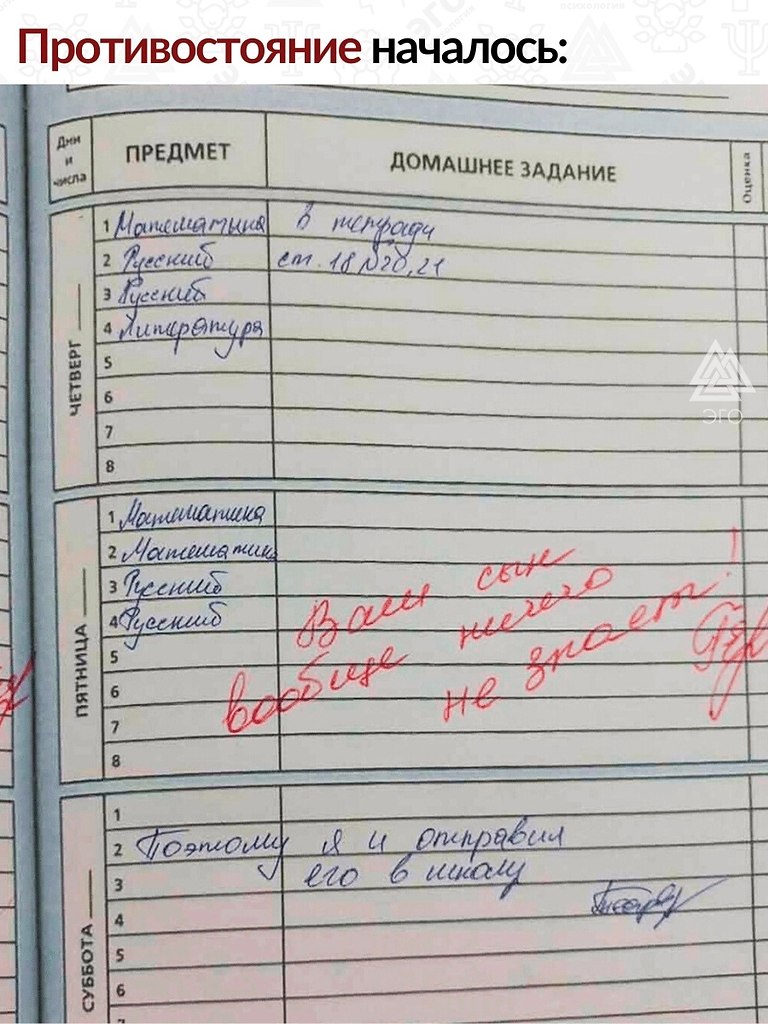 Противостояние началось:
Дни и числа ПРЕДМЕТ ДОМАШНЕЕ ЗАДАНИЕ Оценка
ЧЕТВЕРГ
1 Математика в тетради
2 Русский ст. 18 №20,21
3 Русский
4 Литература
5
6
7
8
ЭГО
ПЯТНИЦА
1 Математика
2 Математика
3 Русский
4 Русский
5
6
7
8
Ваш сын
вообще ничего
не знает!
СУББОТА
1
2 Поэтому я и отправил
3 его в школу
4
5
6